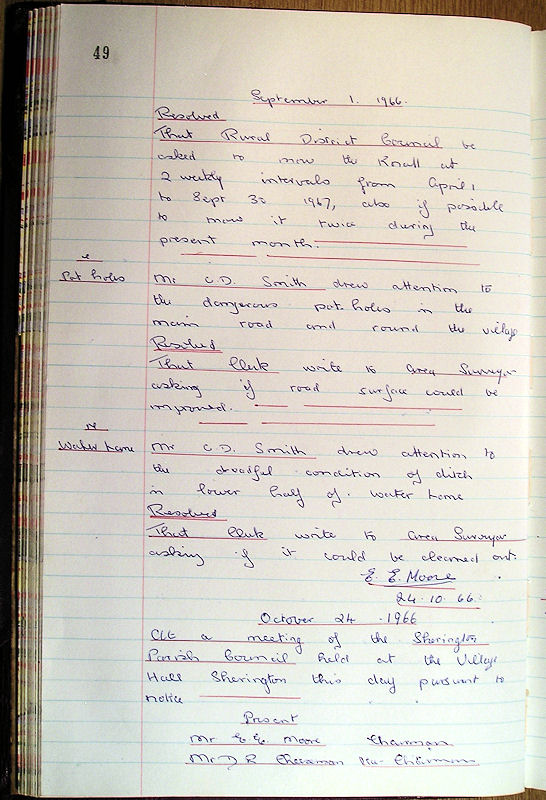 49
September 1. 1966.
Resolved
That Rural District Council be
asked to mow the Knoll at
2 weekly intervals from April 1
to Sept 30 1967, also if possible
to mow it twice during the
present month.
re
Pot holes
Mr C.D. Smith drew attention to
the dangerous pot holes in the
main road and round the village
Resolved
That Clerk write to Area Surveyor
asking if road surface could be
improved.
re
Water Lane
Mr C.D. Smith drew attention to
the dreadful condition of ditch
in lower half of water Lane
Resolved
That Clerk write to Area Surveyor
asking if it could be cleaned out.
E. E. Moore
24.10.66.
October 24 1966
At a meeting of the Sherington
Parish Council held at the Village
Hall Sherington this day pursuant to
notice
Present
Mr E.E. Moore Chairman
Mr D R Vice-Chairman